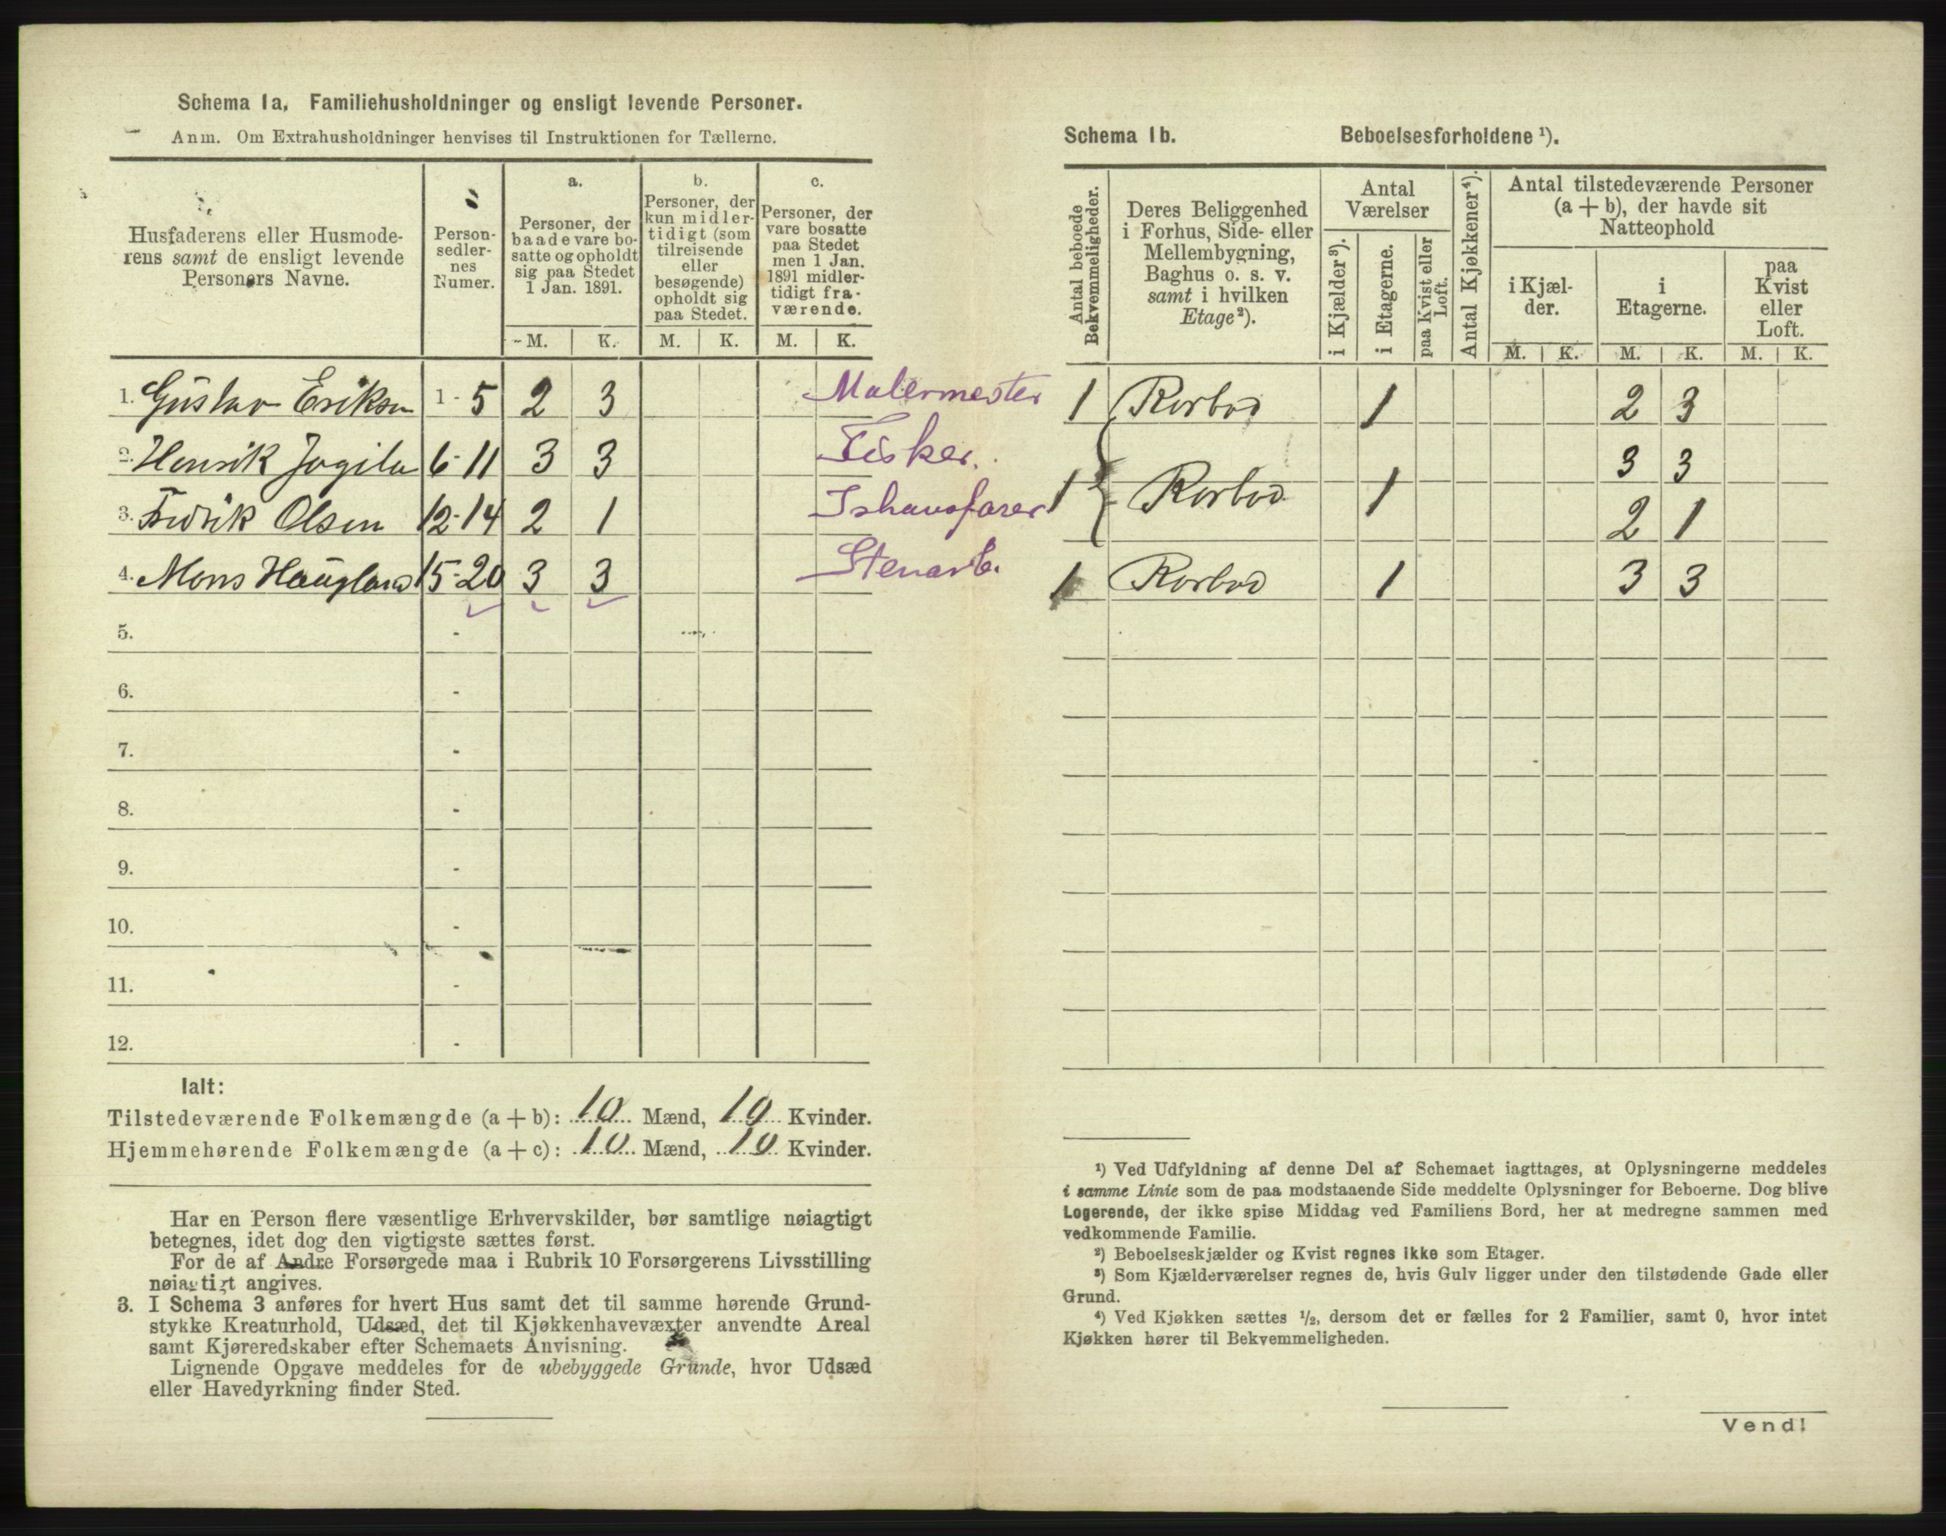 Schema 1a, Familiehusholdninger og ensligt levende Personer.
Anm. Om Extrahusholdninger henvises til Instruktionen for Tællerne.
Husfaderens eller Husmode-
rens samt de ensligt levende
Personers Navne.
Person-
sedler-
nes
Numer.
a.
Personer, der
baade vare bo-
satte og opholdt
sig paa Stedet
1 Jan. 1891.
b.
Personer, der
kun midler-
tidigt (som
tilreisende
eller
besøgende)
opholdt sig
paa Stedet.
c.
Personer, der
vare bosatte
paa Stedet
men 1 Jan.
1891 midler-
tidigt fra-
værende.
M. K. M. K. M. K.
1. Gustav Eriksen 1 - 5 2 3 Malermester
2. Henrik Jogila 6-11 3 3 Fisker.
3. Fredrik Olsen 12-14 2 1 Ishavsfarer
4. Mons Haugland 15-20 3 3 Stenarb.
5. -
6. -
7. -
8. -
9. -
10. -
11. -
12. -
Ialt:
Tilstedeværende Folkemængde (a + b): 10 Mænd, 10 Kvinder.
Hjemmehørende Folkemængde (a + c): 10 Mænd, 10 Kvinder.
Har en Person flere væsentlige Erhvervskilder, bør samtlige nøiagtigt
betegnes, idet dog den vigtigste sættes først.
For de af Andre Forsørgede maa i Rubrik 10 Forsørgerens Livsstilling
nøiagtigt angives.
3. I Schema 3 anføres for hvert Hus samt det til samme hørende Grund-
stykke Kreaturhold, Udsæd, det til Kjøkkenhavevæxter anvendte Areal
samt Kjøreredskaber efter Schemaets Anvisning.
Lignende Opgave meddeles for de ubebyggede Grunde, hvor Udsæd
eller Havedyrkning finder Sted.
Schema 1b. Beboelsesforholdene ¹).
Antal beboede
Bekvemmeligheder.
Deres Beliggenhed
i Forhus, Side- eller
Mellembygning,
Baghus o. s. v.
samt i hvilken
Etage²).
Antal
Værelser
i Kjælder³).
i Etagerne.
paa Kvist eller
Loft.
Antal Kjøkkener⁴).
Antal tilstedeværende Personer
(a + b), der havde sit
Natteophold
i Kjæl-
der.
i
Etagerne.
paa
Kvist
eller
Loft.
M. K. M. K. M. K.
1 Rorbod 1 2 3
3 3
1 Rorbod 1
2 1
1 Rorbod 1 3 3
¹) Ved Udfyldning af denne Del af Schemaet iagttages, at Oplysningerne meddeles
i samme Linie som de paa modstaaende Side meddelte Oplysninger for Beboerne. Dog blive
Logerende, der ikke spise Middag ved Familiens Bord, her at medregne sammen med
vedkommende Familie.
²) Beboelseskjælder og Kvist regnes ikke som Etager.
³) Som Kjælderværelser regnes de, hvis Gulv ligger under den tilstødende Gade eller
Grund.
⁴) Ved Kjøkken sættes ½, dersom det er fælles for 2 Familier, samt 0, hvor intet
Kjøkken hører til Bekvemmeligheden.
Vend!